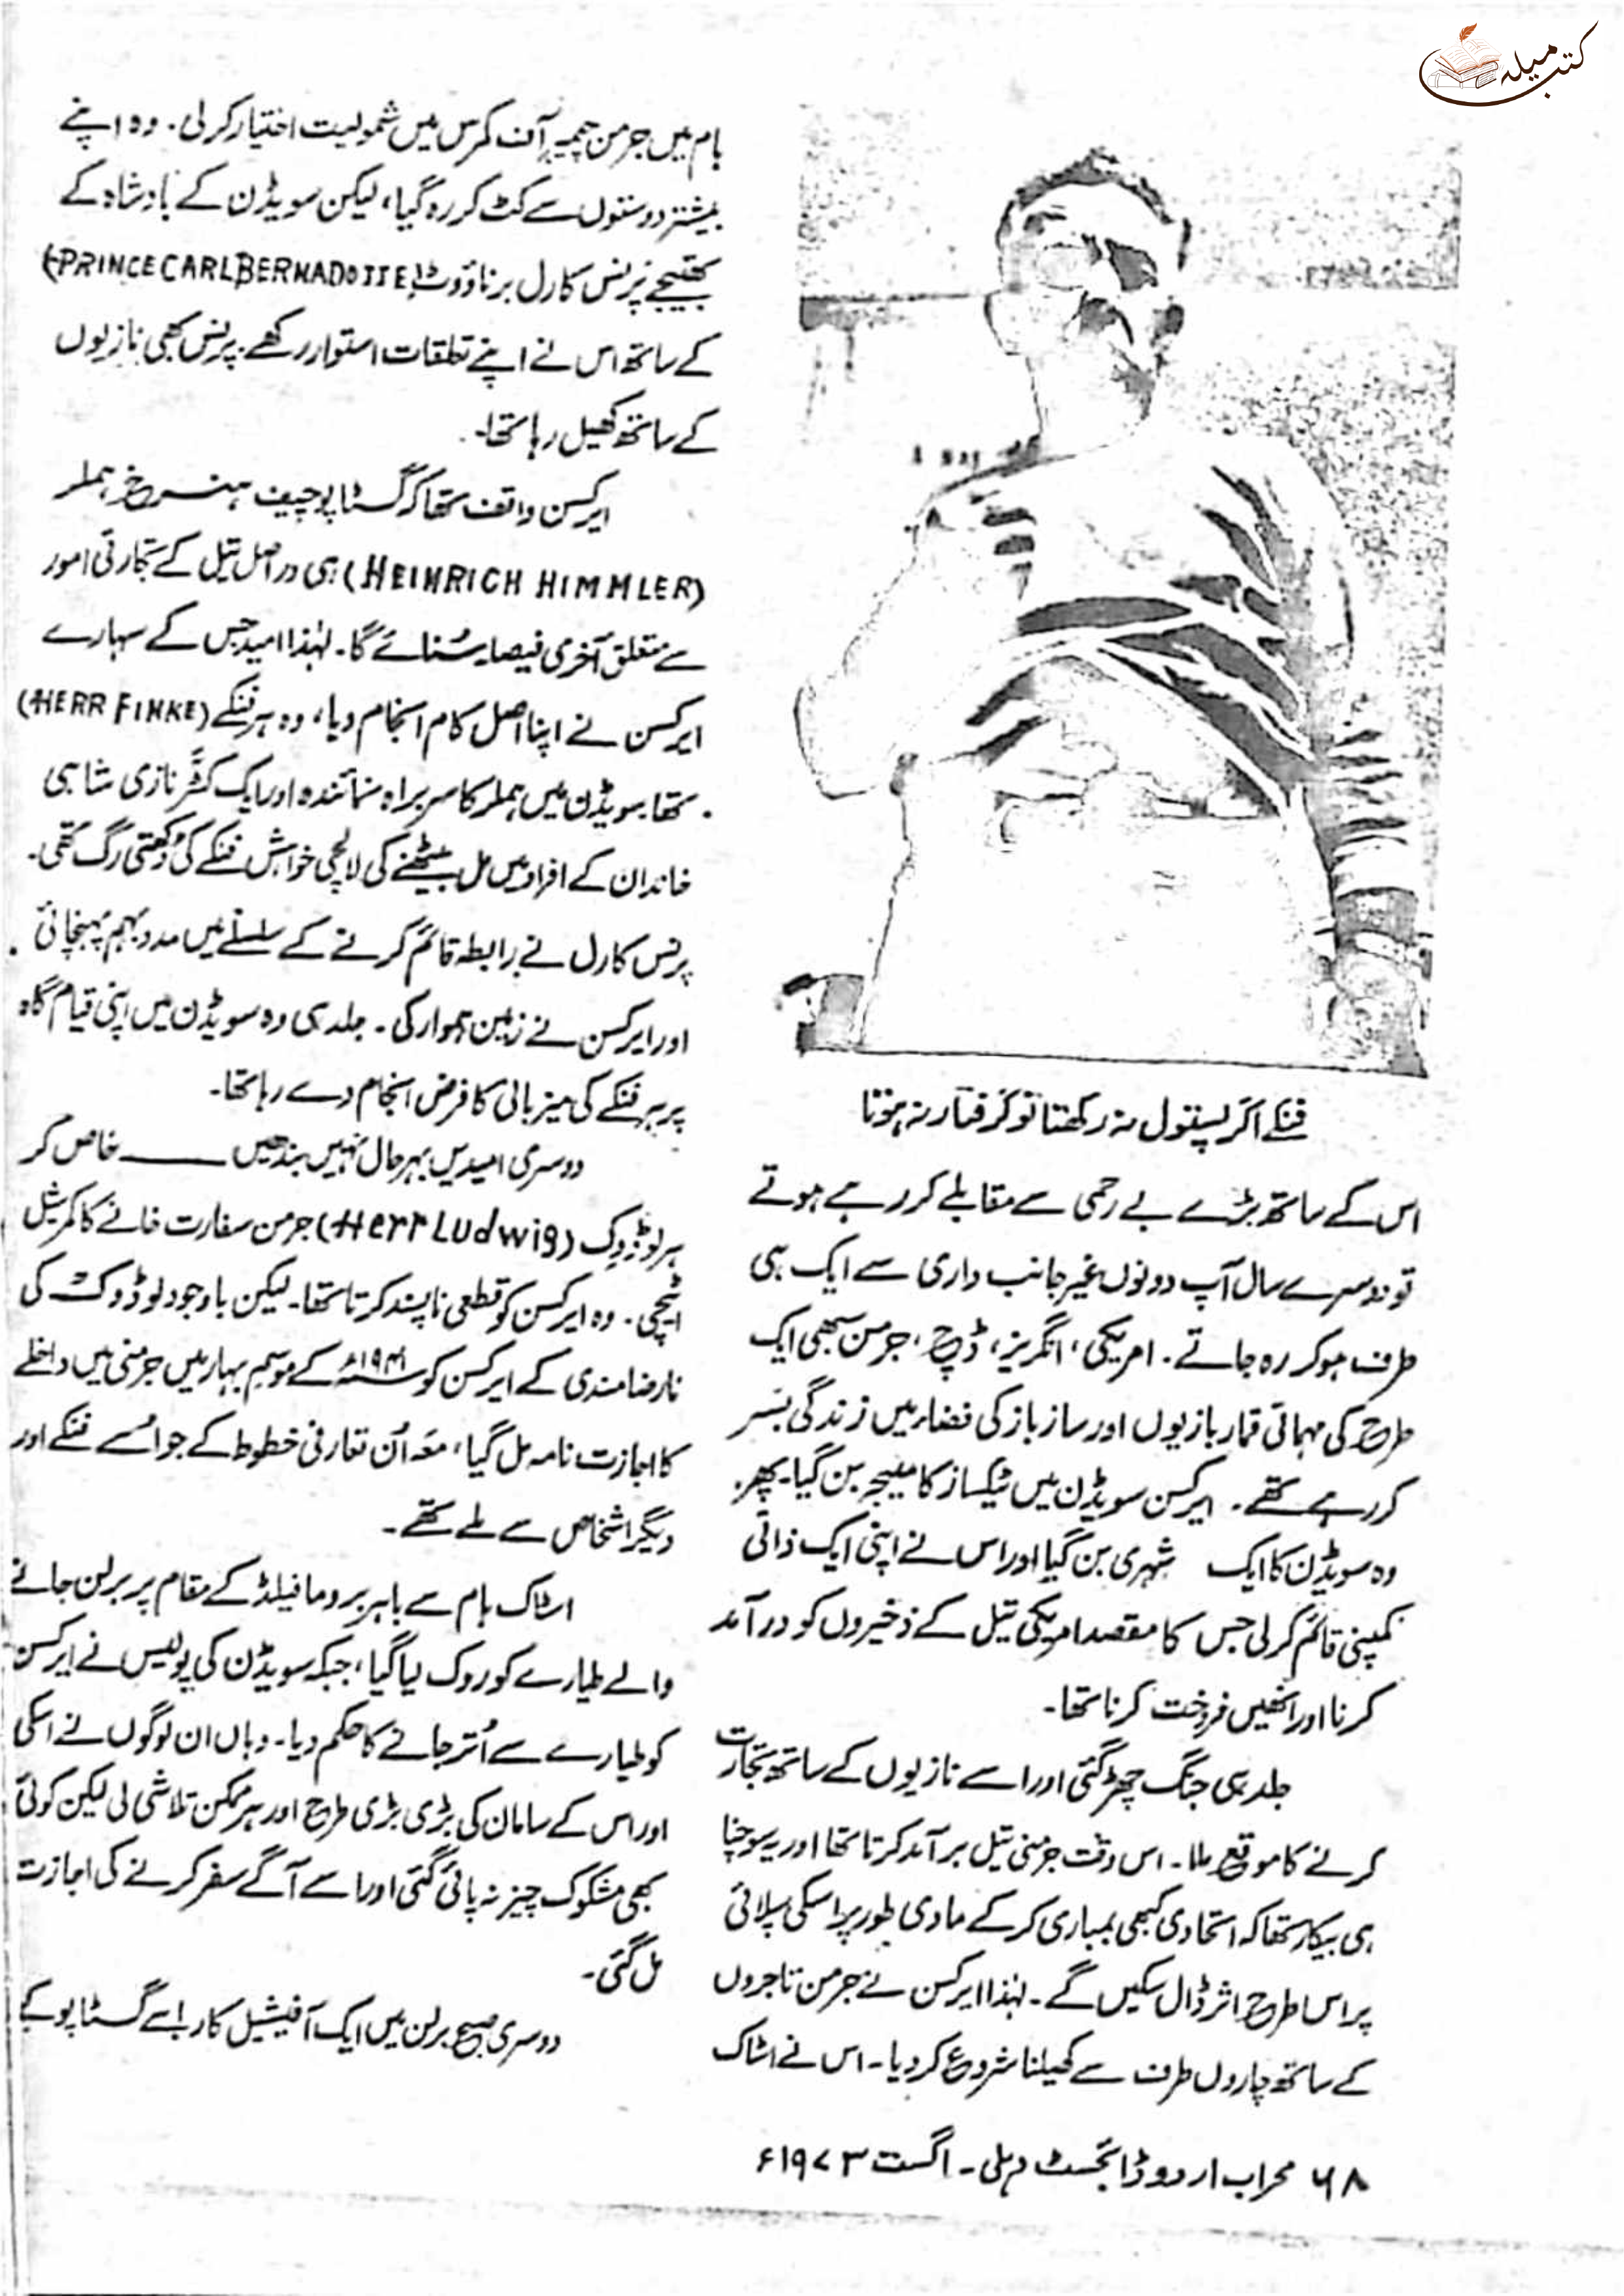 کتب میلہ
فنکے اگر پستول نہ رکھتا تو گرفتار نہ ہوتا
اس کے ساتھ بڑے بے رحمی سے مقابلے کر رہے ہوتے
تو دوسرے سال آپ دونوں غیر جانب داری سے ایک ہی
طرف ہو کر رہ جاتے۔ امریکی، انگریز، ڈچ، جرمن سبھی ایک
طرح کی مہماتی قمار بازیوں اور ساز باز کی فضاء میں زندگی بسر
کر رہے تھے۔ ایرکسن سویڈن میں ٹیکساز کا منیجر بن گیا۔ پھر
وہ سویڈن کا ایک شہری بن گیا اور اس نے اپنی ایک ذاتی
کمپنی قائم کر لی جس کا مقصد امریکی تیل کے ذخیروں کو درآمد
کرنا اور انھیں فروخت کرنا تھا۔
جلد ہی جنگ چھڑ گئی اور اسے نازیوں کے ساتھ تجارت
کرنے کا موقع ملا۔ اس وقت جرمنی تیل برآمد کرتا تھا اور یہ سوچنا
ہی بیکار تھا کہ اتحادی کبھی بمباری کر کے مادی طور پر اسکی سپلائی
پر اس طرح اثر ڈال سکیں گے۔ لہٰذا ایرکسن نے جرمن تاجروں
کے ساتھ چاروں طرف سے کھیلنا شروع کر دیا۔ اس نے اسٹاک
ہام میں جرمن چیمبر آف کمرس میں شمولیت اختیار کر لی۔ وہ اپنے
بیشتر دوستوں سے کٹ کر رہ گیا، لیکن سویڈن کے بادشاہ کے
بھتیجے پرنس کارل برناڈوٹ (PRINCE CARL BERNADOTTE)
کے ساتھ اس نے اپنے تعلقات استوار رکھے۔ پرنس بھی نازیوں
کے ساتھ کھیل رہا تھا۔
ایرکسن واقف تھا کہ گسٹاپو چیف ہنرخ ہملر
(HEINRICH HIMMLER) ہی در اصل تیل کے تجارتی امور
سے متعلق آخری فیصلہ سنائے گا۔ لہٰذا امید جس کے سہارے
ایرکسن نے اپنا اصل کام انجام دیا، وہ ہر فنکے (HERR FINKE)
تھا۔ سویڈن میں ہملر کا سربراہ نمائندہ اور ایک کٹّر نازی شاہی
خاندان کے افراد میں مل بیٹھنے کی لالچی خواہش فنکے کی دُکھتی رگ تھی۔
پرنس کارل نے رابطہ قائم کرنے کے سلسلے میں مدد بہم پہنچائی
اور ایرکسن نے زمین ہموار کی۔ جلد ہی وہ سویڈن میں اپنی قیام گاہ
پر ہر فنکے کی میزبانی کا فرض انجام دے رہا تھا۔
دوسری امیدیں بہر حال نہیں بندھیں ——— خاص کر
ہر لوڈوک (Herr Ludwig) جرمن سفارت خانے کا کمرشیل
اٹیچی۔ وہ ایرکسن کو قطعی ناپسند کرتا تھا۔ لیکن باوجود لوڈوک کی
نارضامندی کے ایرکسن کو ۱۹۴۱ء کے موسم بہار میں جرمنی میں داخلے
کا اجازت نامہ مل گیا، معہ اُن تعارفی خطوط کے جو اُسے فنکے اور
دیگر اشخاص سے ملے تھے۔
اسٹاک ہام سے باہر بروما فیلڈ کے مقام پر برلن جانے
والے طیارے کو روک لیا گیا، جبکہ سویڈن کی پولیس نے ایرکسن
کو طیارے سے اُتر جانے کا حکم دیا۔ وہاں ان لوگوں نے اسکی
اور اس کے سامان کی بڑی بڑی طرح اور ہر ممکن تلاشی لی لیکن کوئی
بھی مشکوک چیز نہ پائی گئی اور اسے آگے سفر کرنے کی اجازت
مل گئی۔
دوسری صبح برلن میں ایک آفیشیل کار اسے گسٹاپو کے
۶۸ محراب اردو ڈائجسٹ دہلی۔ اگست ۱۹۷۳ء